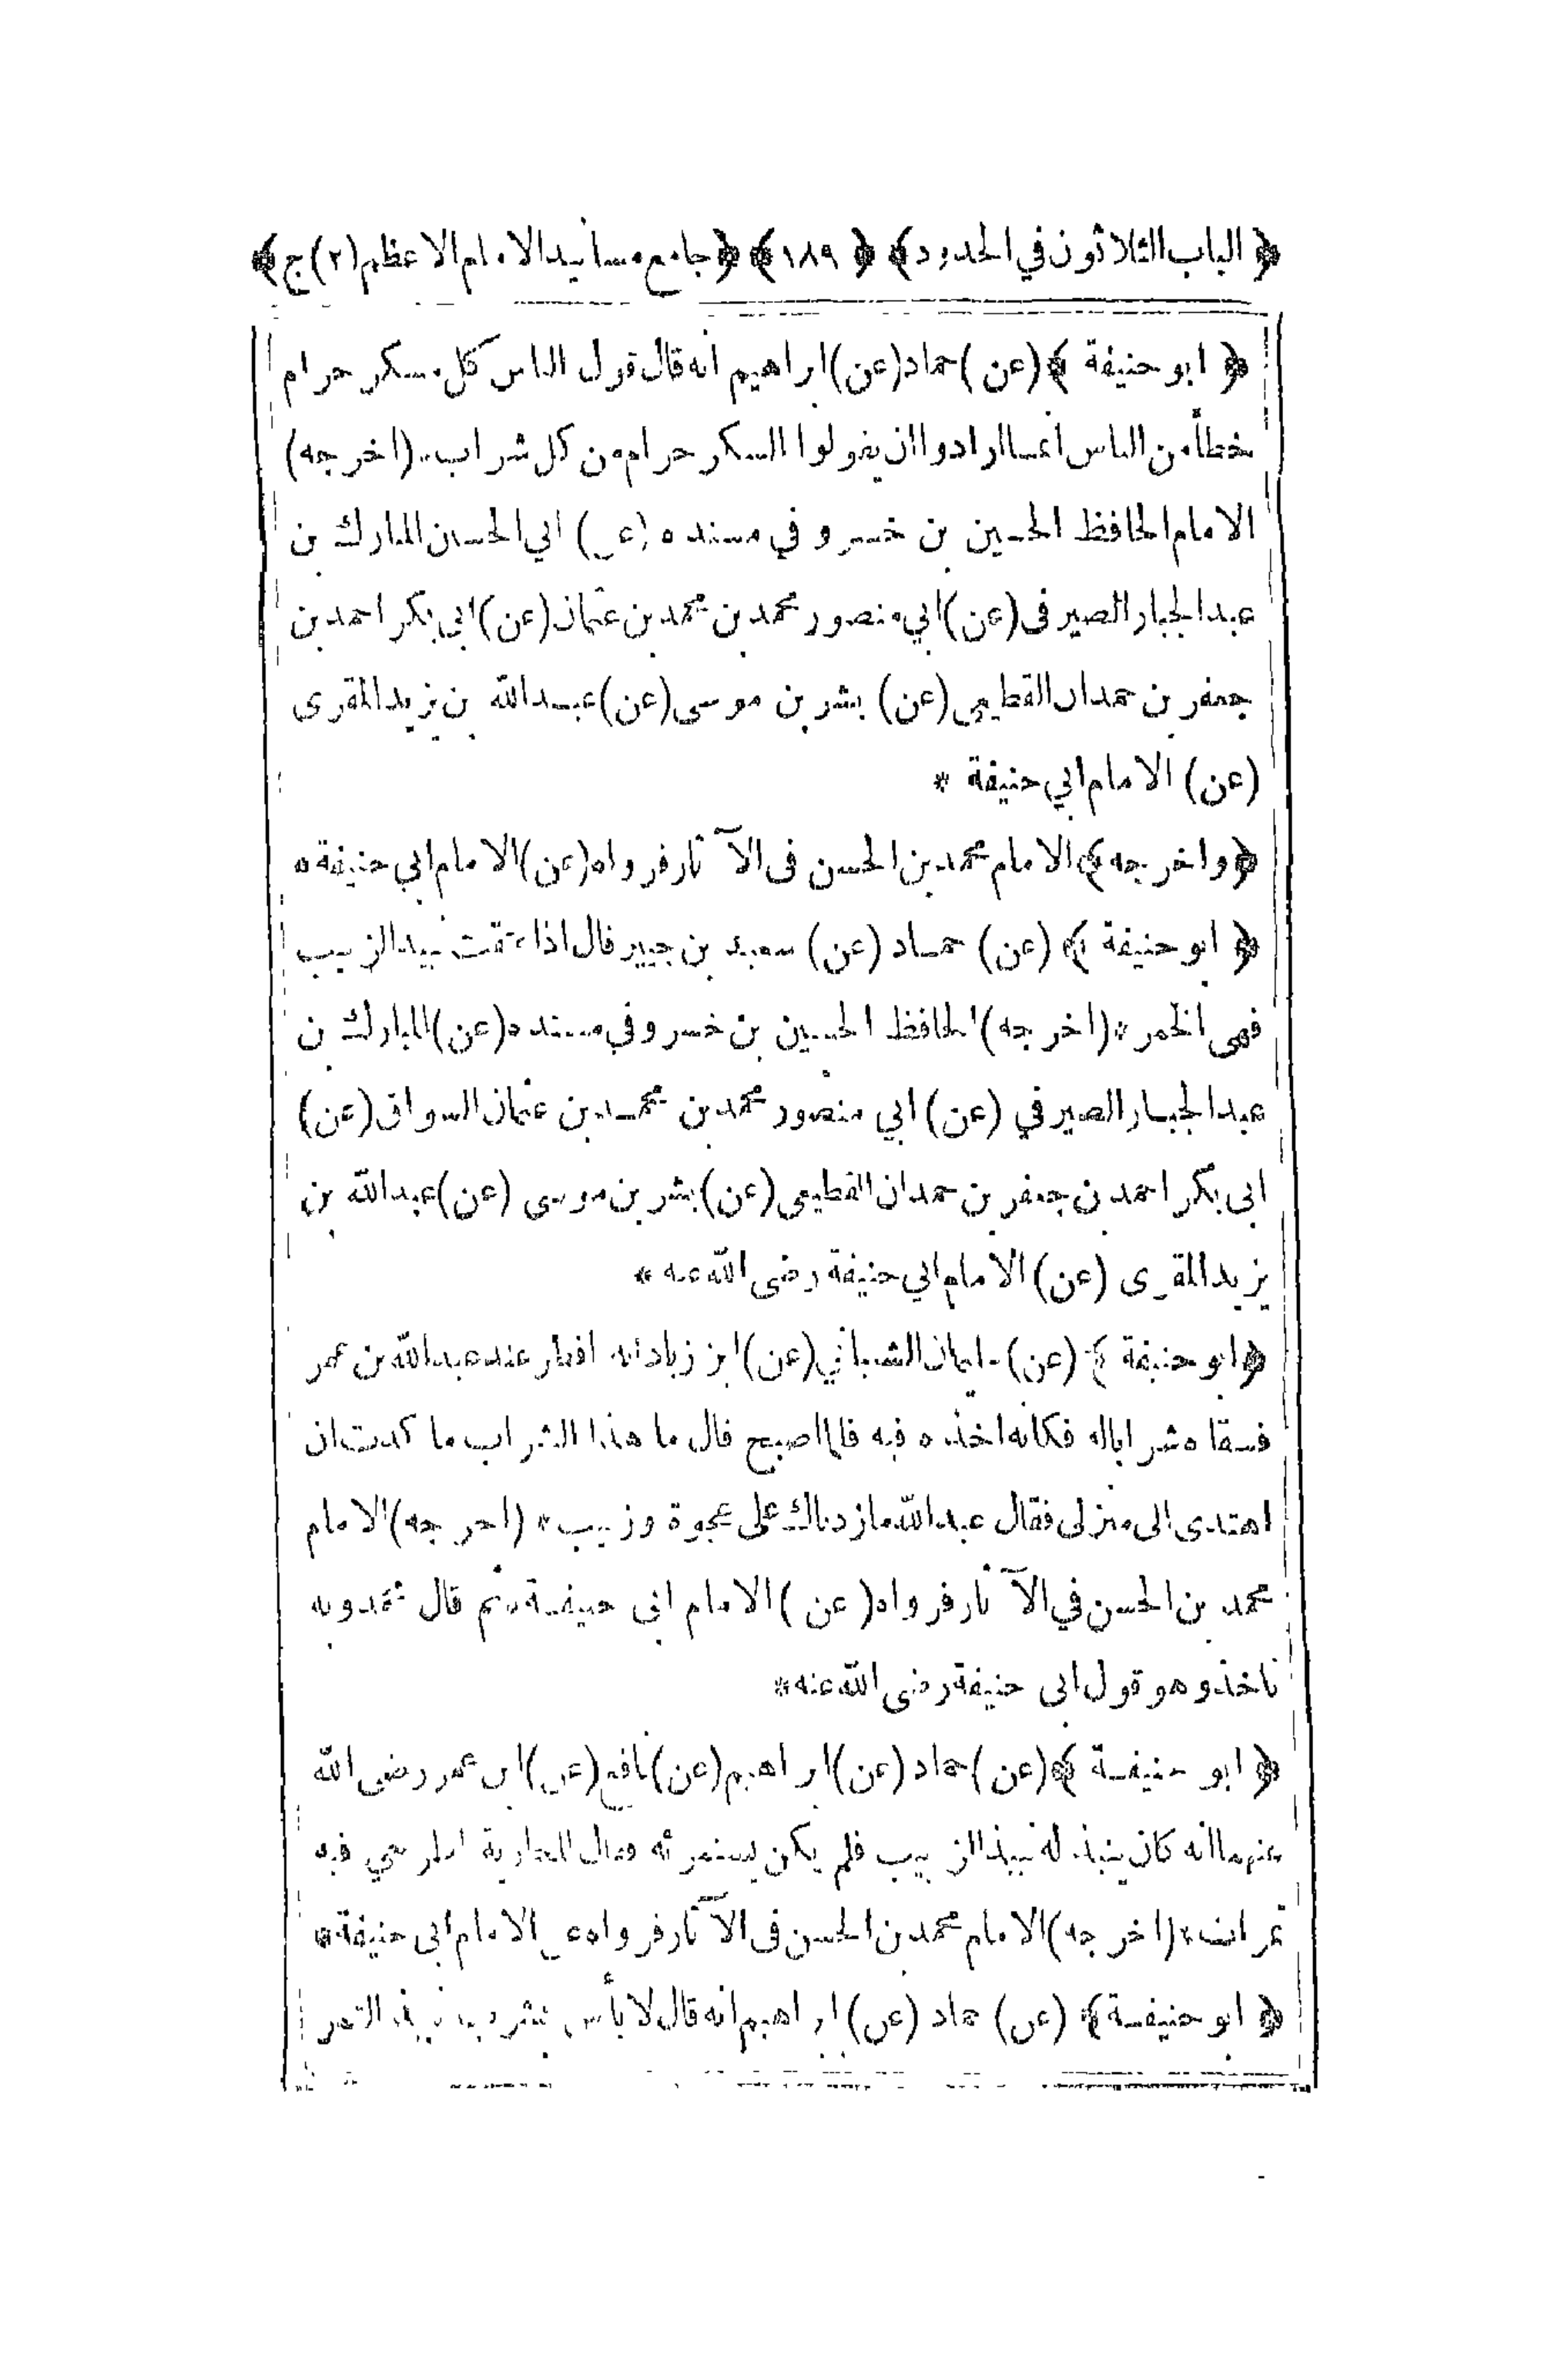 ﴿ الباب الثلاثون في الحدود ﴾ ﴿ ١٨٩ ﴾ ﴿ جامع مسانيد الامام الاعظم (٢) ج ﴾
﴿ ابو حنيفة ﴾ (عن) حماد (عن) ابراهيم انه قال قول الناس كل مسكر حرام
خطأ من الناس انما ارادوا ان يقولوا السكر حرام من كل شراب * (اخرجه)
الامام الحافظ الحسين بن خسرو في مسنده (عن) ابي الحسين المبارك بن
عبد الجبار الصيرفى (عن) ابي منصور محمد بن محمد بن عثمان (عن) ابى بكر احمد بن
جعفر بن حمدان القطيعي (عن) بشر بن موسى (عن) عبد الله بن يزيد المقرى
(عن) الامام ابي حنيفة *
﴿ واخرجه ﴾ الامام محمد بن الحسن فى الآثار فرواه (عن) الامام ابي حنيفة *
﴿ ابو حنيفة ﴾ (عن) حماد (عن) سعيد بن جبير قال اذا عتقت نبيذ الزبيب
فهى الخمر * (اخرجه) الحافظ الحسين بن خسرو في مسنده (عن) المبارك بن
عبد الجبار الصيرفي (عن) ابي منصور محمد بن محمد بن عثمان السواق (عن)
ابى بكر احمد بن جعفر بن حمدان القطيعي (عن) بشر بن موسى (عن) عبد الله بن
يزيد المقرى (عن) الامام ابي حنيفة رضى الله عنه *
﴿ ابو حنيفة ﴾ (عن) سليمان الشيباني (عن) ابن زياد انه افطر عند عبد الله بن عمر
فسقاه شرابا له فكانه اخذه فيه فلما اصبح قال ما هذا الشراب ما كدت ان
اهتدى الى منزلى فقال عبد الله ما زدناك على عجوة وزبيب * (اخرجه) الامام
محمد بن الحسن في الآثار فرواه (عن) الامام ابى حنيفة ثم قال محمد وبه
ناخذ وهو قول ابى حنيفة رضى الله عنه *
﴿ ابو حنيفة ﴾ (عن) حماد (عن) ابراهيم (عن) نافع (عن) ابن عمر رضى الله
عنهما انه كان ينبذ له نبيذ الزبيب فلم يكن يستمرئه فقال للجارية اطرحي فيه
تمرات * (اخرجه) الامام محمد بن الحسن فى الآثار فرواه عن الامام ابى حنيفة *
﴿ ابو حنيفة ﴾ (عن) حماد (عن) ابراهيم انه قال لا بأس بشرب نبيذ التمر